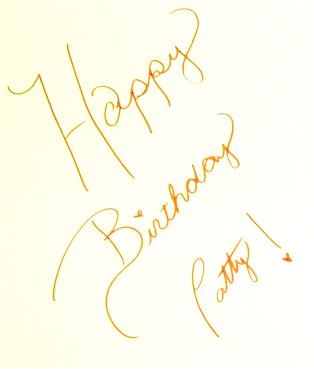 Happy
Birthday
Patty!